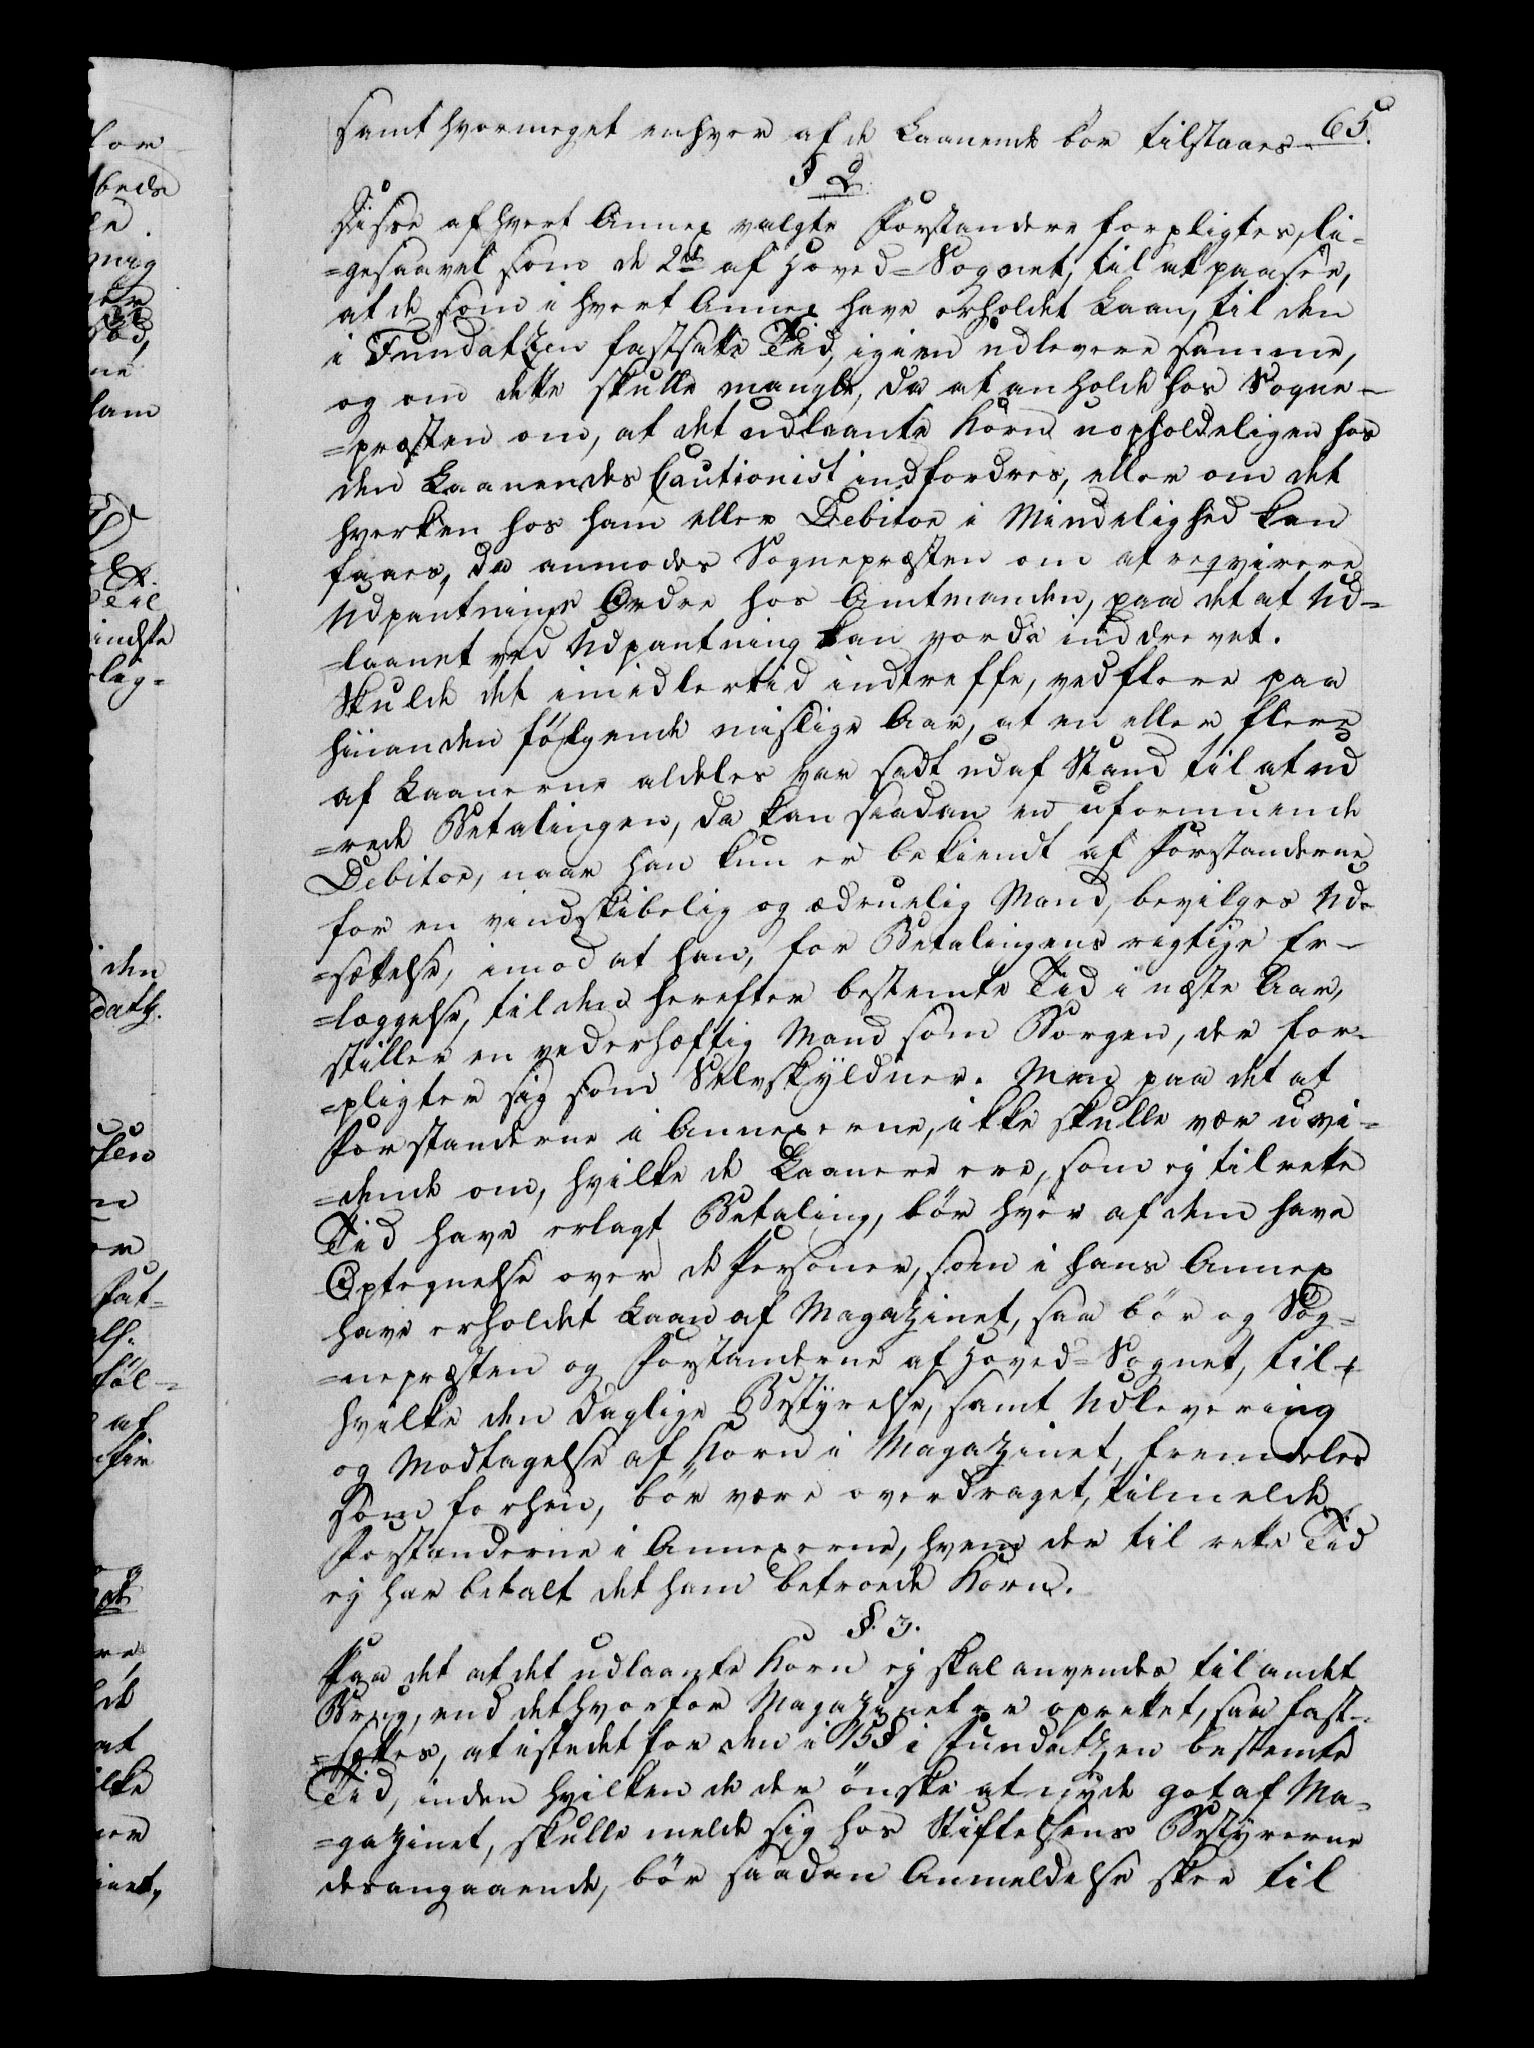 65.
samt hvormeget enhver af de Laanende bør tilstaaes.
§ 2.
Disse af hvert Annex valgte Forstandere forpligtes, li-
=gesaavel som de 2de af Hoved-Sognet, til at paasee,
at de som i hvert Annex have erholdet Laan, til den
i Fundatzen fastsatte Tid, igien udlevere samme,
og om dette skulle mangle, da at anholde hos Sogne-
=præsten om, at det udlaante Korn uopholdeligen hos
den Laanendes Cautionist indfordres, eller om det
hverken hos ham eller Debitor i Mindelighed kan
faaes, da anmodes Sognepræsten om at reqvirere
Udpantnings Ordre hos Amtmanden, paa det at Ud-
=laanet ved Udpantning kan vorde inddrevet.
Skulde det imidlertid indtreffe, ved flere paa
hinanden følgende mislige Aar, at en eller flere
af Laanerne aldeles var sadt udaf Stand til at ud
=rede Betalingen, da kan saadan en uformuende
Debitor, naar han kun er bekiendt af Forstanderne
for en vindskibelig og ædruelig Mand, bevilges Ud-
=sættelse, imod at han, for Betalingens rigtige Er-
=læggelse, til den herefter bestemte Tid i næste Aar,
stiller en vederhæftig Mand som Borgen, der for-
=pligter sig som Selvskyldner. Men paa det at
Forstanderne i Annexerne, ikke skulle vær uvi-
=dende om, hvilke de Laanere ere, som ej til rette
Tid have erlagt Betaling, bør hver af dem have
Optegnelse over de Personer, som i hans Annex
have erholdet Laan af Magazinet, saa bør og Sog-
=nepræsten og Forstanderne af Hoved-Sognet, til
hvilke den daglige Bestyrelse, samt Udlevering
og Modtagelse af Korn i Magazinet, fremdeles
som forhen, bør være overdraget, tilmelde
Forstanderne i Annexerne, hvem der til rette Tid
ej har betalt det ham betroede Korn.
§. 3.
Paa det at det udlaante Korn ej skal anvendes til andet
Brug, end det hvorfor Magazinet er oprettet, saa fast-
=sættes, at istedet for den i 15 § i Fundatzen bestemte
Tid, inden hvilken de der ønske at nyde got af Ma-
=gazinet, skulle melde sig hos Stiftelsens Bestyrerne
desangaaende, bør saadan Anmeldelse skee til